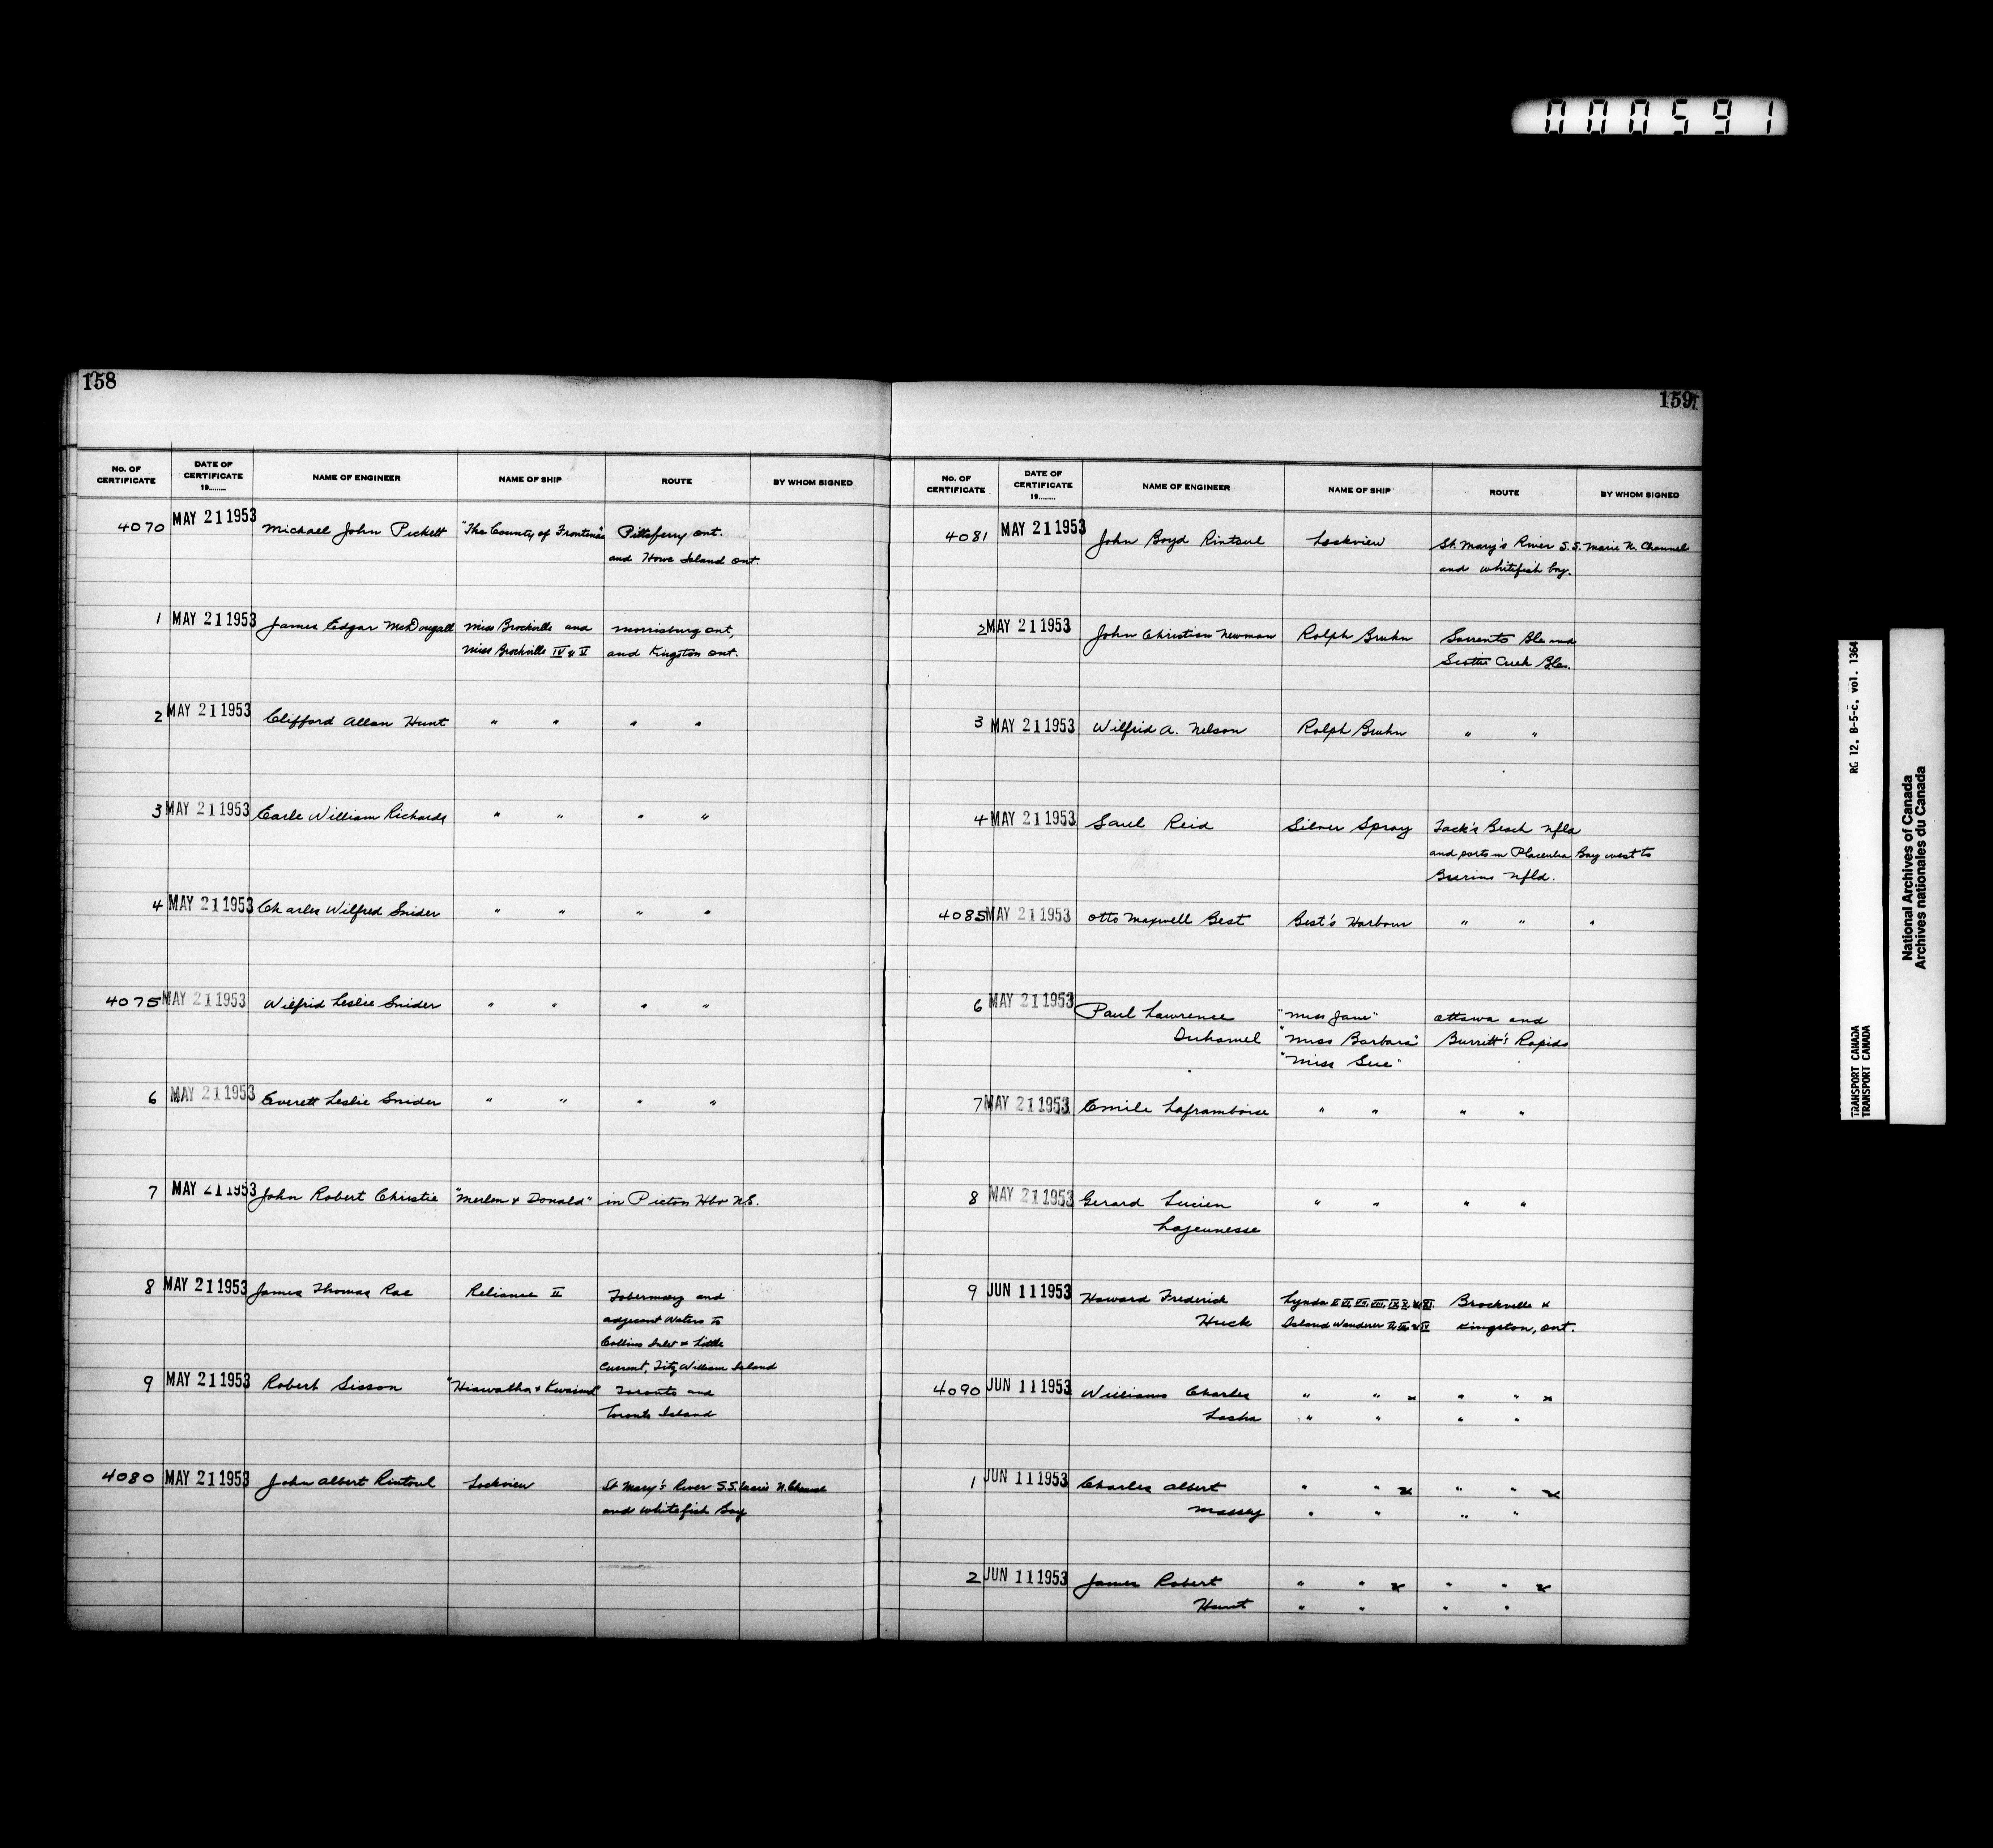 000591
158
No. OF CERTIFICATE DATE OF CERTIFICATE 19........ NAME OF ENGINEER NAME OF SHIP ROUTE BY WHOM SIGNED
4070 MAY 21 1953 Michael John Pickett "The County of Frontenac" Pittsferry Ont.
and Howe Island Ont.
1 MAY 21 1953 James Edgar McDougall Miss Brockville and Morrisburg Ont,
Miss Brockville IV & V and Kingston Ont.
2 MAY 21 1953 Clifford Allan Hunt " " " "
3 MAY 21 1953 Earle William Richards " " " "
4 MAY 21 1953 Charles Wilfred Snider " " " "
4075 MAY 21 1953 Wilfrid Leslie Snider " " " "
6 MAY 21 1953 Everett Leslie Snider " " " "
7 MAY 21 1953 John Robert Christie "Merlen & Donald" in Pictou Hbr N.S.
8 MAY 21 1953 James Thomas Rae Reliance II Tobermory and
adjacent Waters to
Collins Inlet & Little
Current, Fitz William Island
9 MAY 21 1953 Robert Sisson "Hiawatha & Kwasind" Toronto and
Toronto Island
4080 MAY 21 1953 John Albert Rintoul Lockview St Mary's River S.S. Marie N. Channel
and Whitefish Bay
159
No. OF CERTIFICATE DATE OF CERTIFICATE 19........ NAME OF ENGINEER NAME OF SHIP ROUTE BY WHOM SIGNED
4081 MAY 21 1953 John Boyd Rintoul Lockview St. Mary's River S.S. Marie N. Channel
and Whitefish bay.
2 MAY 21 1953 John Christian Newman Ralph Bruhn Sorrento Bla and
Scotts Creek Bla.
3 MAY 21 1953 Wilfrid A. Nelson Ralph Bruhn " "
4 MAY 21 1953 Saul Reid Silver Spray Tack's Beach Nfld
and ports in Placentia Bay west to
Burin Nfld.
4085 MAY 21 1953 Otto Maxwell Best Best's Harbour " " "
6 MAY 21 1953 Paul Lawrence "Miss Jane" Ottawa and
Duhamel "Miss Barbara" Burritt's Rapids
"Miss Sue"
7 MAY 21 1953 Emile Laframboise " " " "
8 MAY 21 1953 Gerard Lucien " " " "
Lajeunesse
9 JUN 11 1953 Howard Frederick Lynda Brockville &
Huck Island Wanderer Kingston, Ont.
4090 JUN 11 1953 Williams Charles " " & " " &
Lasha " " " "
1 JUN 11 1953 Charles Albert " " & " " &
Massey " " " "
2 JUN 11 1953 James Robert " " & " " &
Hunt " " " "
RG 12, B-5-C, vol. 1364
TRANSPORT CANADA
TRANSPORT CANADA
National Archives of Canada
Archives nationales du Canada